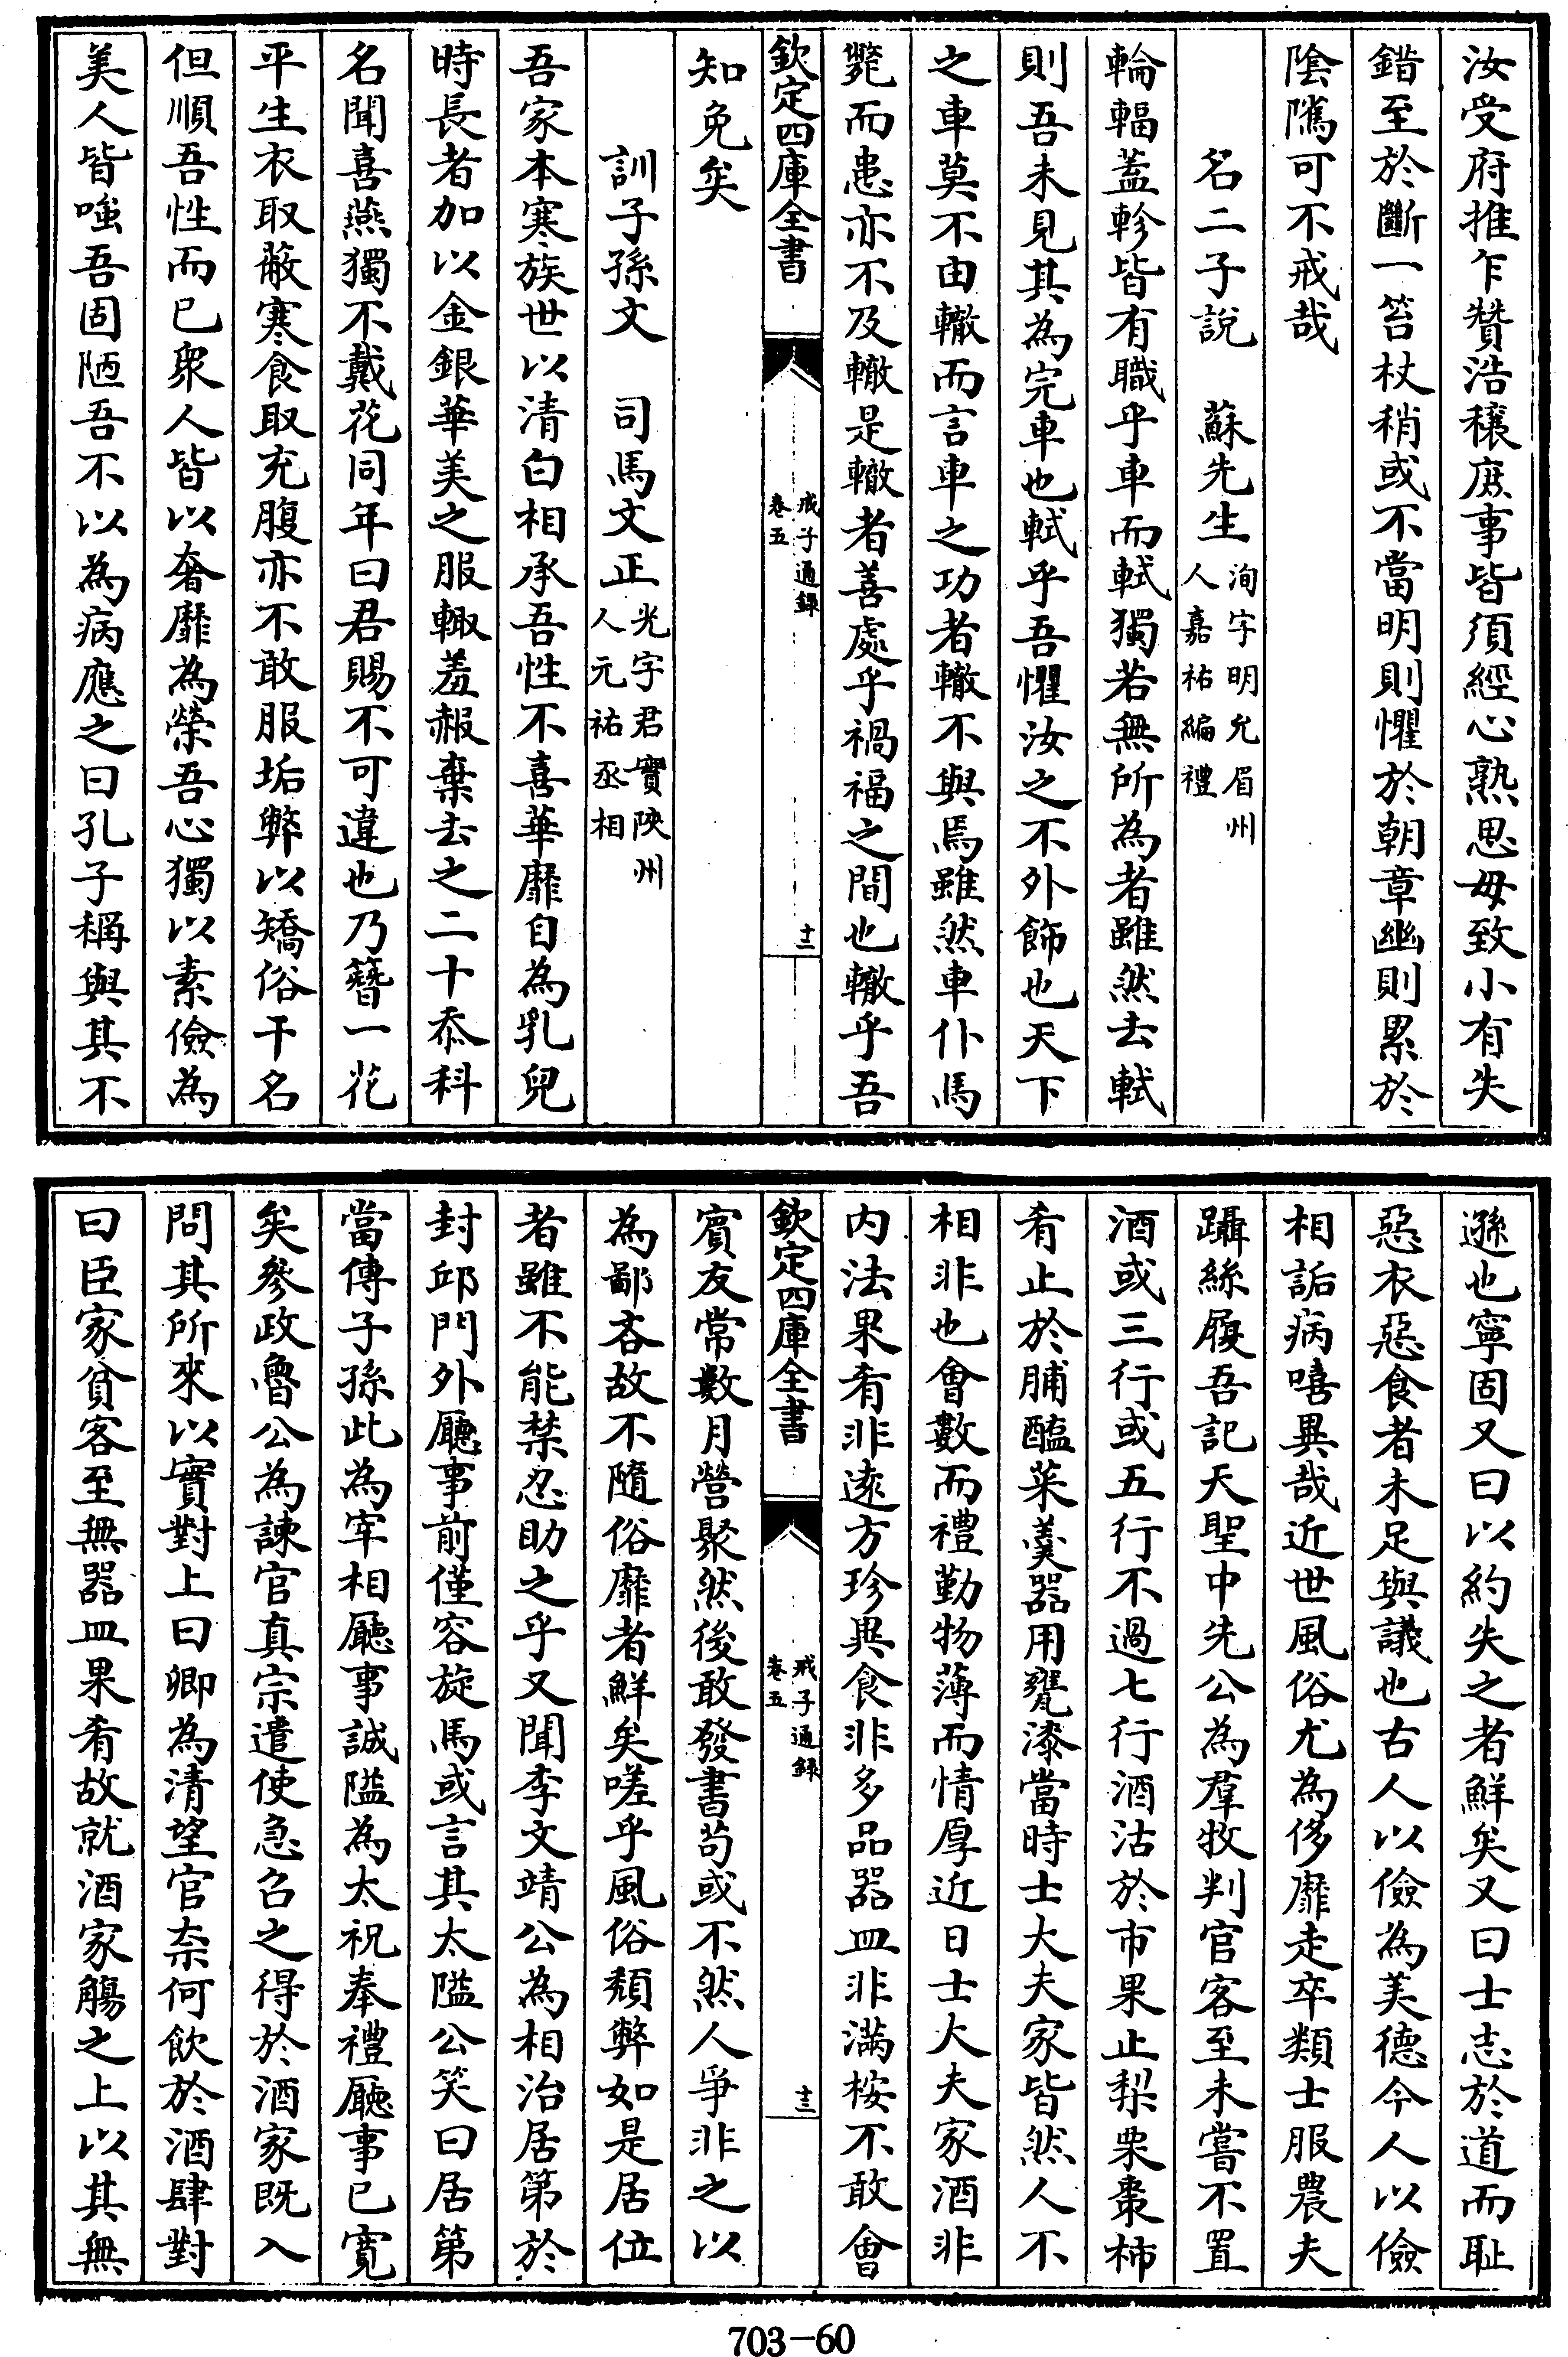 汝受府推乍贊浩穰庶事皆須經心熟思毋致小有失
錯至於斷一笞杖稍或不當明則懼於朝章幽則累於
陰隲可不戒哉
名二子說　蘇先生洵字明允眉州人嘉祐編禮
輪輻蓋軫皆有職乎車而軾獨若無所為者雖然去軾
則吾未見其為完車也軾乎吾懼汝之不外飾也天下
之車莫不由轍而言車之功者轍不與焉雖然車仆馬
斃而患亦不及轍是轍者善處乎禍福之間也轍乎吾
欽定四庫全書　戒子通錄卷五　十二
知免矣
訓子孫文　司馬文正光字君實陜州人元祐丞相
吾家本寒族世以清白相承吾性不喜華靡自為乳兒
時長者加以金銀華美之服輙羞赧棄去之二十忝科
名聞喜燕獨不戴花同年曰君賜不可違也乃簪一花
平生衣取蔽寒食取充腹亦不敢服垢弊以矯俗干名
但順吾性而已衆人皆以奢靡為榮吾心獨以素儉為
美人皆嗤吾固陋吾不以為病應之曰孔子稱與其不
遜也寧固又曰以約失之者鮮矣又曰士志於道而恥
惡衣惡食者未足與議也古人以儉為美德今人以儉
相詬病嘻異哉近世風俗尤為侈靡走卒類士服農夫
躡絲履吾記天聖中先公為羣牧判官客至未嘗不置
酒或三行或五行不過七行酒沽於市果止梨栗棗柿
肴止於脯醢菜羹器用甆漆當時士大夫家皆然人不
相非也會數而禮勤物薄而情厚近日士大夫家酒非
内法果肴非逺方珍異食非多品器皿非滿桉不敢會
欽定四庫全書　戒子通錄卷五　十三
賓友常數月營聚然後敢發書苟或不然人爭非之以
為鄙吝故不隨俗靡者鮮矣嗟乎風俗頹弊如是居位
者雖不能禁忍助之乎又聞李文靖公為相治居第於
封邱門外廳事前僅容旋馬或言其太隘公笑曰居第
當傳子孫此為宰相廳事誠隘為太祝奉禮廳事已寛
矣參政魯公為諫官真宗遣使急召之得於酒家既入
問其所來以實對上曰卿為清望官奈何飲於酒肆對
曰臣家貧客至無器皿果肴故就酒家觴之上以其無
703—60